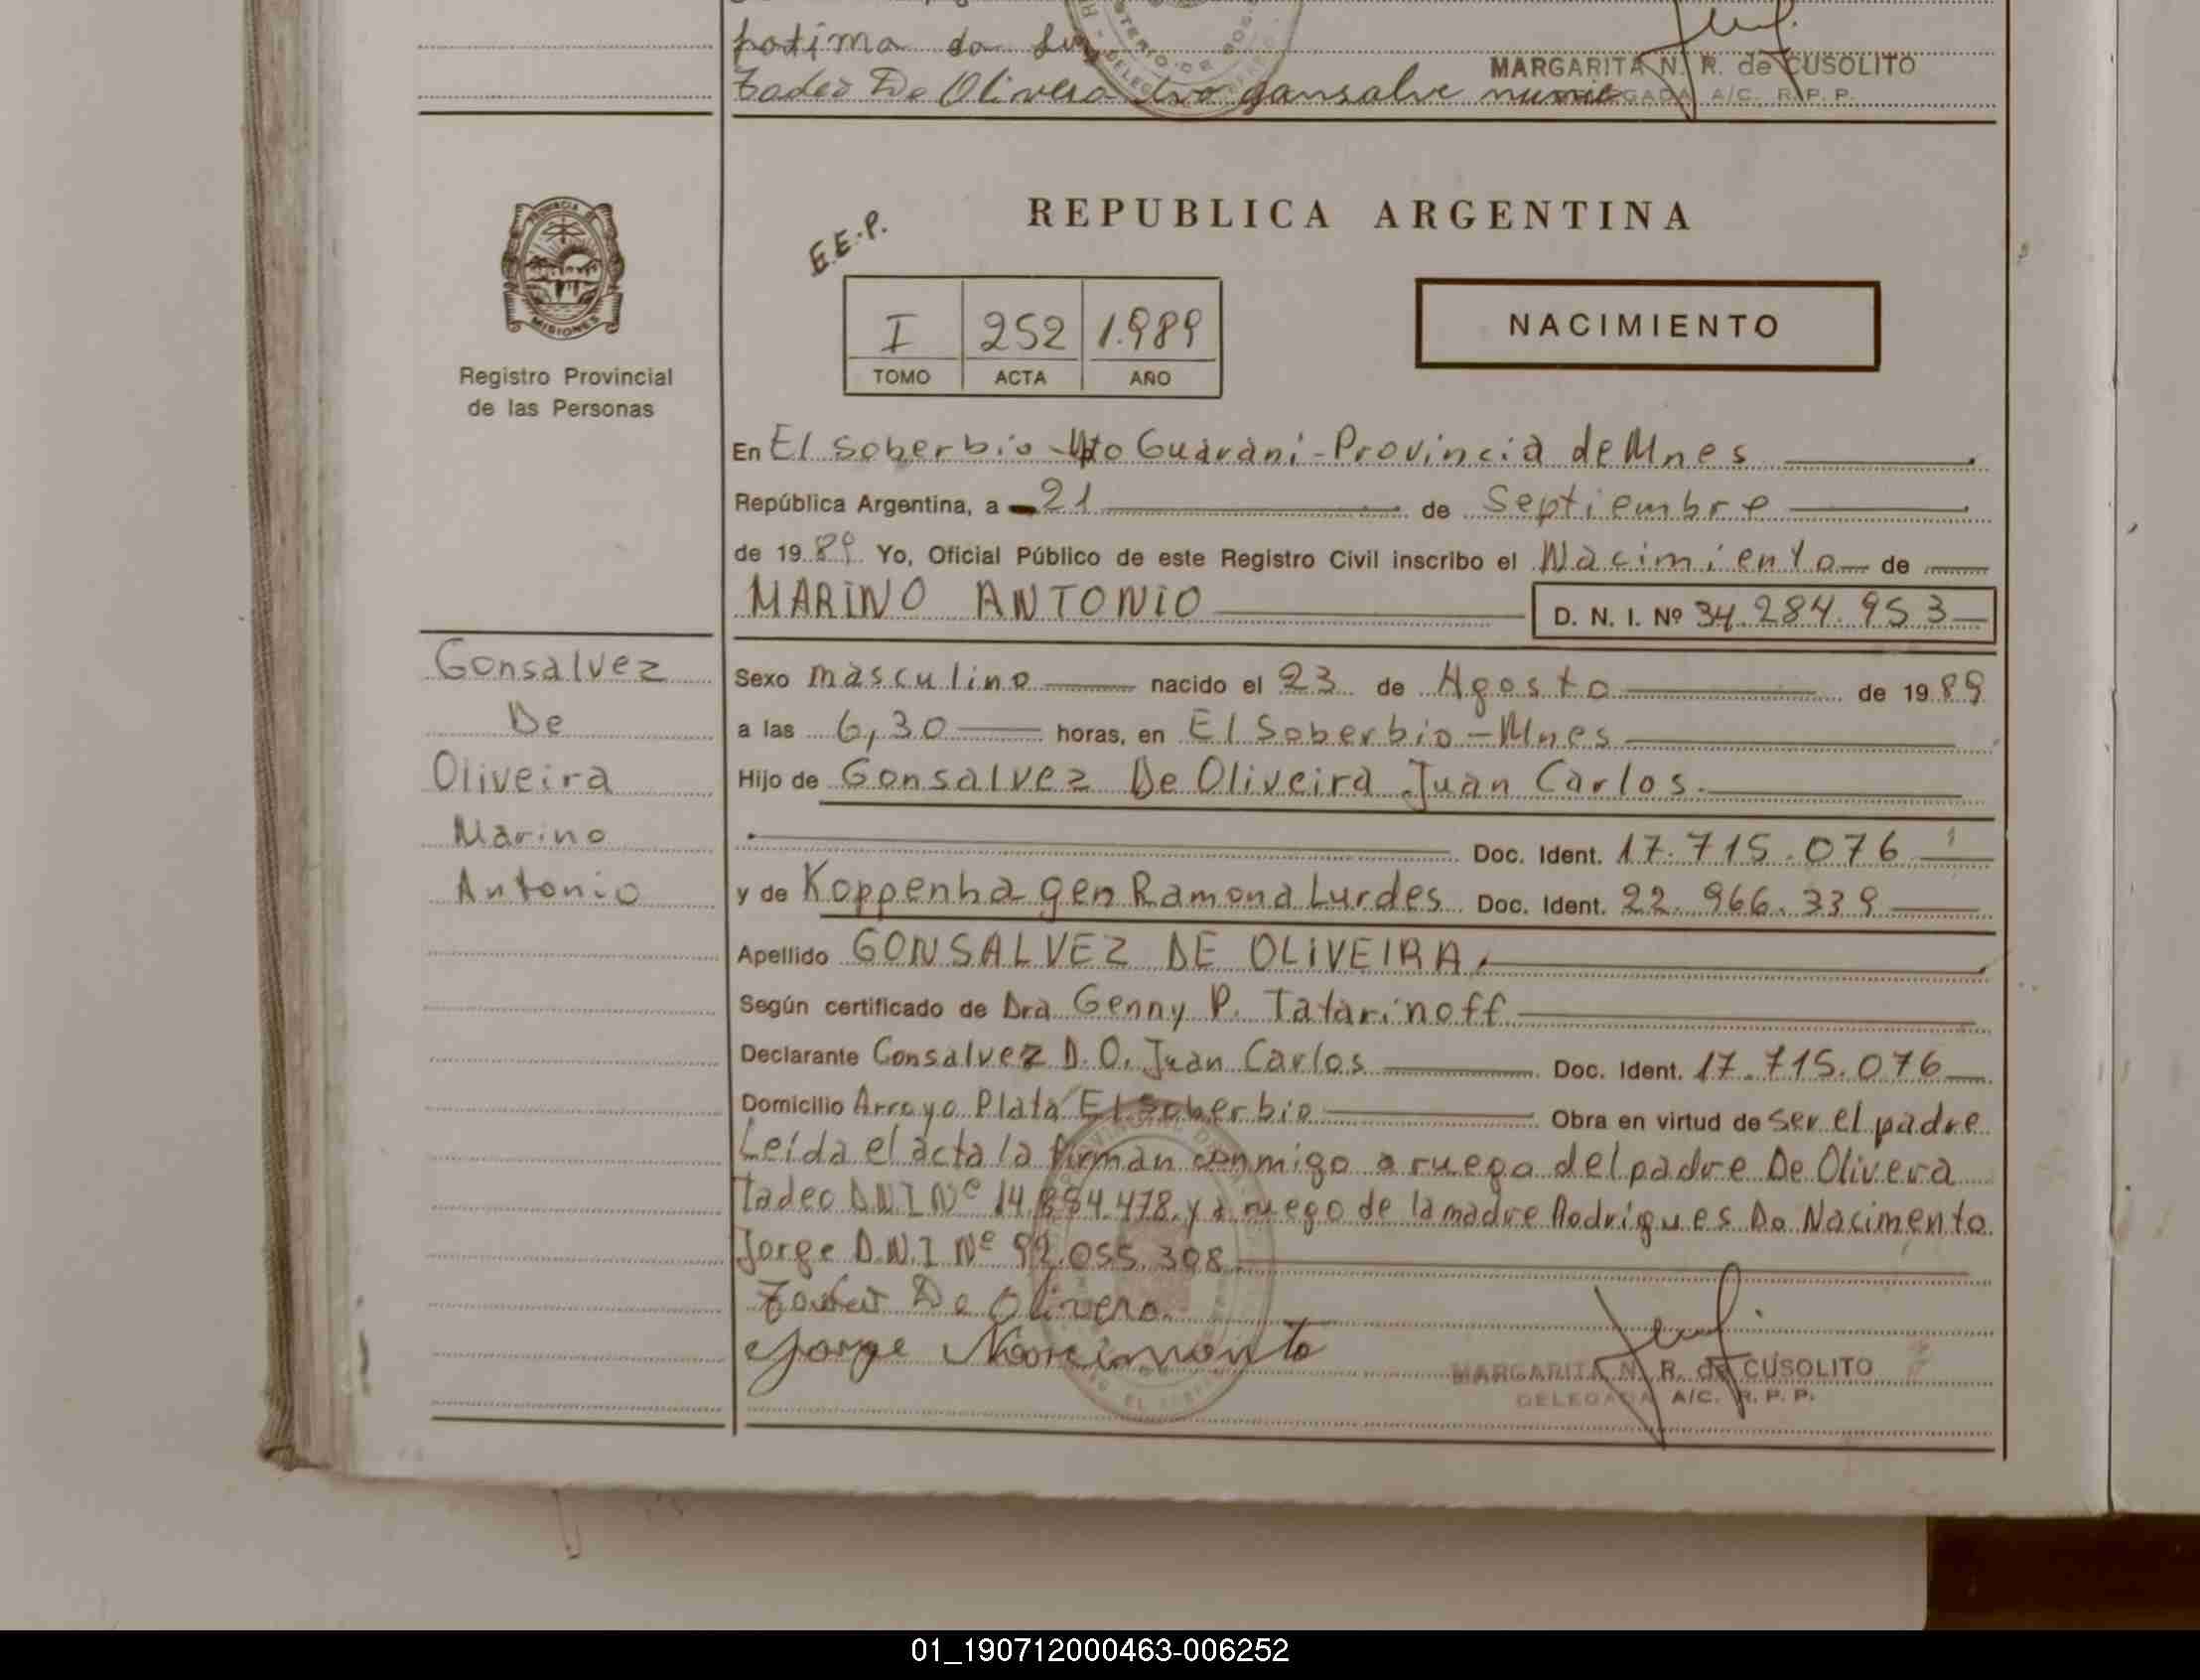 fatima da
Tadeo De Olivera Ivo gansalve nunie
MARGARITA N. R. de CUSOLITO
DELEGADA A/C. R. P. P.
PROVINCIA DE
MISIONES
Registro Provincial
de las Personas
E.E.P.
REPUBLICA ARGENTINA
I 252 1.989
TOMO ACTA AÑO
NACIMIENTO
En El Soberbio - Dpto Guaraní - Provincia de Mnes
República Argentina, a 21 de Septiembre
de 1989 Yo, Oficial Público de este Registro Civil inscribo el Nacimiento de
MARINO ANTONIO D. N. I. Nº 34.284.953
Gonsalvez
De
Oliveira
Marino
Antonio
Sexo masculino nacido el 23 de Agosto de 1989
a las 6,30 horas, en El Soberbio - Mnes
Hijo de Gonsalvez De Oliveira Juan Carlos.
Doc. Ident. 17.715.076
y de Koppenhagen Ramona Lurdes Doc. Ident. 22.966.339
Apellido GONSALVEZ DE OLIVEIRA.
Según certificado de Dra Genny P. Tatarinoff
Declarante Gonsalvez D.O. Juan Carlos Doc. Ident. 17.715.076
Domicilio Arroyo Plata El Soberbio Obra en virtud de ser el padre
Leída el acta la firman conmigo a ruego del padre De Olivera
Tadeo D.N.I Nº y a ruego de la madre Rodrigues Do Nacimento
Jorge D.N.I Nº 92.055.308
Tadeo De Olivera
Jorge Nascimento
MARGARITA N. R. de CUSOLITO
DELEGADA A/C. R. P. P.
01_190712000463-006252